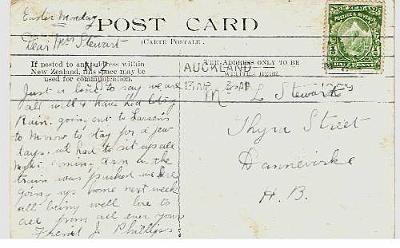 Easter Monday
POST CARD
(CARTE POSTALE.)
Dear Mrs Stewart
If posted to an address within
New Zealand, this space may be
used for communication.
THE ADDRESS ONLY TO BE
WRITTEN HERE.
N.Z.
AUCKLAND
13 AP
Just a line to say we are
all well & have had lots
Rain. going out to
to Morrow to stay for a few
days. we had to sit up all
night coming down the
train was packed we are
going up home next week
all being well love to
all from all ever your
Friend J. Phillips
M L Stewart
Thyra Street
Dannevirke
H.B.